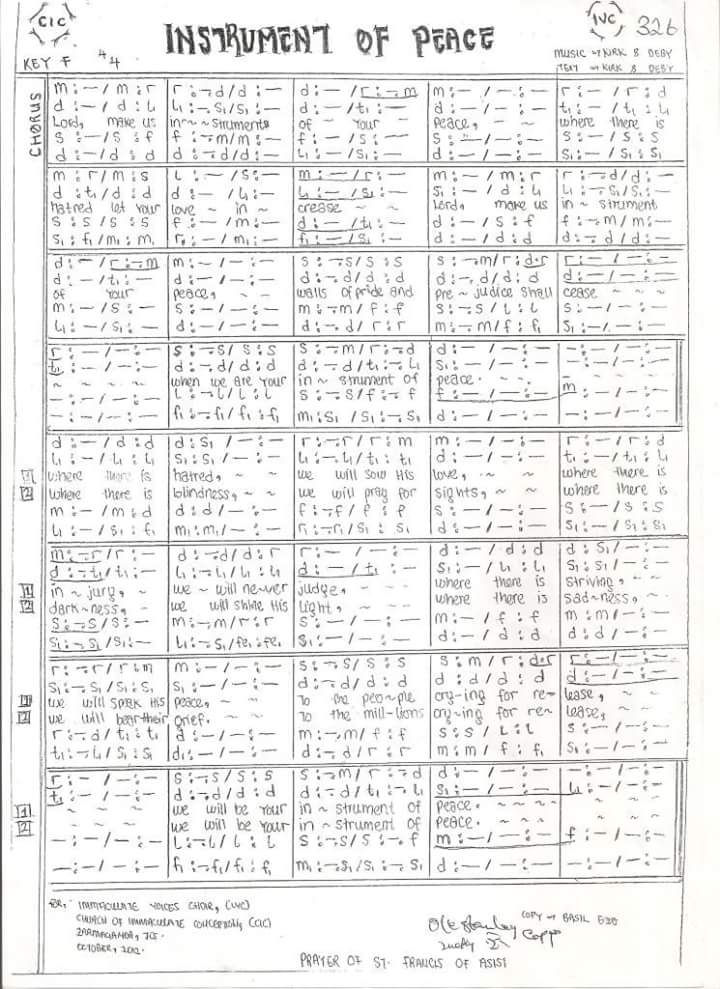 CIC
INSTRUMENT OF PEACE
IVC
326
KEY F
4/4
MUSIC by KIRK & DEBY
TEXT by KIRK & DEBY
CHORUS
m : — / m : r | r : -, d / d : — | d : — / r : -, m | m : — / — : — | r : — / r : d
d : — / d : l₁ | l₁ : -, s₁ / s₁ : — | d : — / t₁ : — | d : — / — : — | t₁ : — / t₁ : l₁
Lord, make us | in ~ ~ struments | of ~ Your ~ | Peace, ~ ~ | where there is
s : — / s : f | f : -, m / m : — | f : — / s : — | s : — / — : — | s : — / s : s
d : — / d : d | d : -, d / d : — | l₁ : — / s₁ : — | d : — / — : — | s₁ : — / s₁ : s₁
m : r / m : s | l : — / s : — | m : — / r : — | m : — / m : r | r : -, d / d : —
d : t₁ / d : d | d : — / l₁ : — | l₁ : — / s₁ : — | s₁ : — / d : l₁ | l₁ : -, s₁ / s₁ : —
hatred let Your | love ~ in ~ | crease ~ ~ | Lord, make us | in ~ strument
s : s / s : s | f : — / m : — | d : — / t₁ : — | d : — / s : f | f : -, m / m : —
s₁ : f₁ / m₁ : m₁ | r₁ : — / m₁ : — | f₁ : — / s₁ : — | d : — / d : d | d : -, d / d : —
d : — / r : -, m | m : — / — : — | s : -, s / s : s | s : -, m / r : d.r | r : — / — : —
d : — / t₁ : — | d : — / — : — | d : -, d / d : d | d : -, d / d : d | d : — / — : —
of Your | peace, ~ ~ | walls of pride and | pre ~ judice shall | cease ~ ~ ~
m : — / s : — | s : — / — : — | m : -, m / f : f | s : -, s / l : l | s : — / — : —
l₁ : — / s₁ : — | d : — / — : — | d : -, d / r : r | m : -, m / f : f₁ | s₁ : — / — : —
r : — / — : — | s : -, s / s : s | s : -, m / r : -, d | d : — / — : — | — : — / — : —
t₁ : — / — : — | d : -, d / d : d | d : -, d / t₁ : -, l₁ | s₁ : — / — : — | — : — / — : —
~ ~ ~ ~ | when we are Your | in ~ strument of | peace. ~ ~
— : — / — : — | l : -, l / l : l | s : -, s / f : -, f | f : — / — : — | m : — / — : —
— : — / — : — | f₁ : -, f₁ / f₁ : f₁ | m₁ : s₁ / s₁ : -, s₁ | d : — / — : — | — : — / — : —
d : — / d : d | d : s₁ / — : — | r : -, r / r : m | m : — / — : — | r : — / r : d
l₁ : — / l₁ : l₁ | s₁ : s₁ / — : — | l₁ : -, l₁ / t₁ : t₁ | d : — / — : — | t₁ : — / t₁ : l₁
[1] where there is | hatred, ~ ~ | we will sow His | love, ~ ~ | where there is
[2] where there is | blindness, ~ ~ | we will pray for | sights, ~ ~ | where there is
m : — / m : d | d : d / — : — | f : -, f / f : f | s : — / — : — | s : — / s : s
l₁ : — / s₁ : f₁ | m₁ : m₁ / — : — | r₁ : -, r₁ / s₁ : s₁ | d : — / — : — | s₁ : — / s₁ : s₁
m : -, r / r : — | d : -, d / d : r | r : — / — : — | d : — / d : d | d : s₁ / — : —
d : -, t₁ / t₁ : — | l₁ : -, l₁ / l₁ : l₁ | d : — / t₁ : — | s₁ : — / l₁ : l₁ | s₁ : s₁ / — : —
[1] in ~ jury, ~ | we ~ will ne~ver | judge, ~ ~ ~ | where there is | striving, ~ ~
[2] dark ~ness, ~ | we will shine His | light, ~ ~ ~ | where there is | sad~ness, ~
s : -, s / s : — | m : -, m / r : r | s : — / — : — | m : — / f : f | m : m / — : —
s₁ : -, s₁ / s₁ : — | l₁ : -, s₁ / fe₁ : fe₁ | s₁ : — / — : — | d : — / d : d | d : d / — : —
r : -, r / r : m | m : — / — : — | s : -, s / s : s | s : m / r : d.r | r : — / — : —
s₁ : -, s₁ / s₁ : s₁ | s₁ : — / — : — | d : -, d / d : d | d : d / d : d | d : — / — : —
[1] we will speak His | peace, ~ ~ ~ | To the peo~ple | cry~ing for re~ | lease, ~ ~
[2] we will bear their | grief. ~ ~ | To the mill~ions | cry~ing for re~ | lease, ~ ~
r : -, d / t₁ : t₁ | d : — / — : — | m : -, m / f : f | s : s / l : l | s : — / — : —
t₁ : -, l₁ / s₁ : s₁ | d₁ : — / — : — | d : -, d / r : r | m : m / f : f₁ | s₁ : — / — : —
r : — / — : — | s : -, s / s : s | s : -, m / r : -, d | d : — / — : — | — : — / — : —
t₁ : — / — : — | d : -, d / d : d | d : -, d / t₁ : -, l₁ | s₁ : — / — : — | l₁ : — / — : —
[1] ~ ~ ~ | we will be Your | in ~ strument of | Peace. ~ ~ ~ | ~ ~ ~ ~
[2] ~ ~ ~ | we will be Your | in ~ strument of | Peace. ~ ~ ~ | ~ ~ ~ ~
— : — / — : — | l : -, l / l : l | s : -, s / s : -, f | m : — / — : — | f : — / — : —
— : — / — : — | f₁ : -, f₁ / f₁ : f₁ | m₁ : -, s₁ / s₁ : -, s₁ | d : — / — : — | — : — / — : —
FOR, IMMACULATE VOICES CHOIR, (IVC)
CHURCH OF IMMACULATE CONCEPTION, (CIC)
OCTOBER, 2012.
COPY by BASIL
PRAYER OF ST. FRANCIS OF ASISI